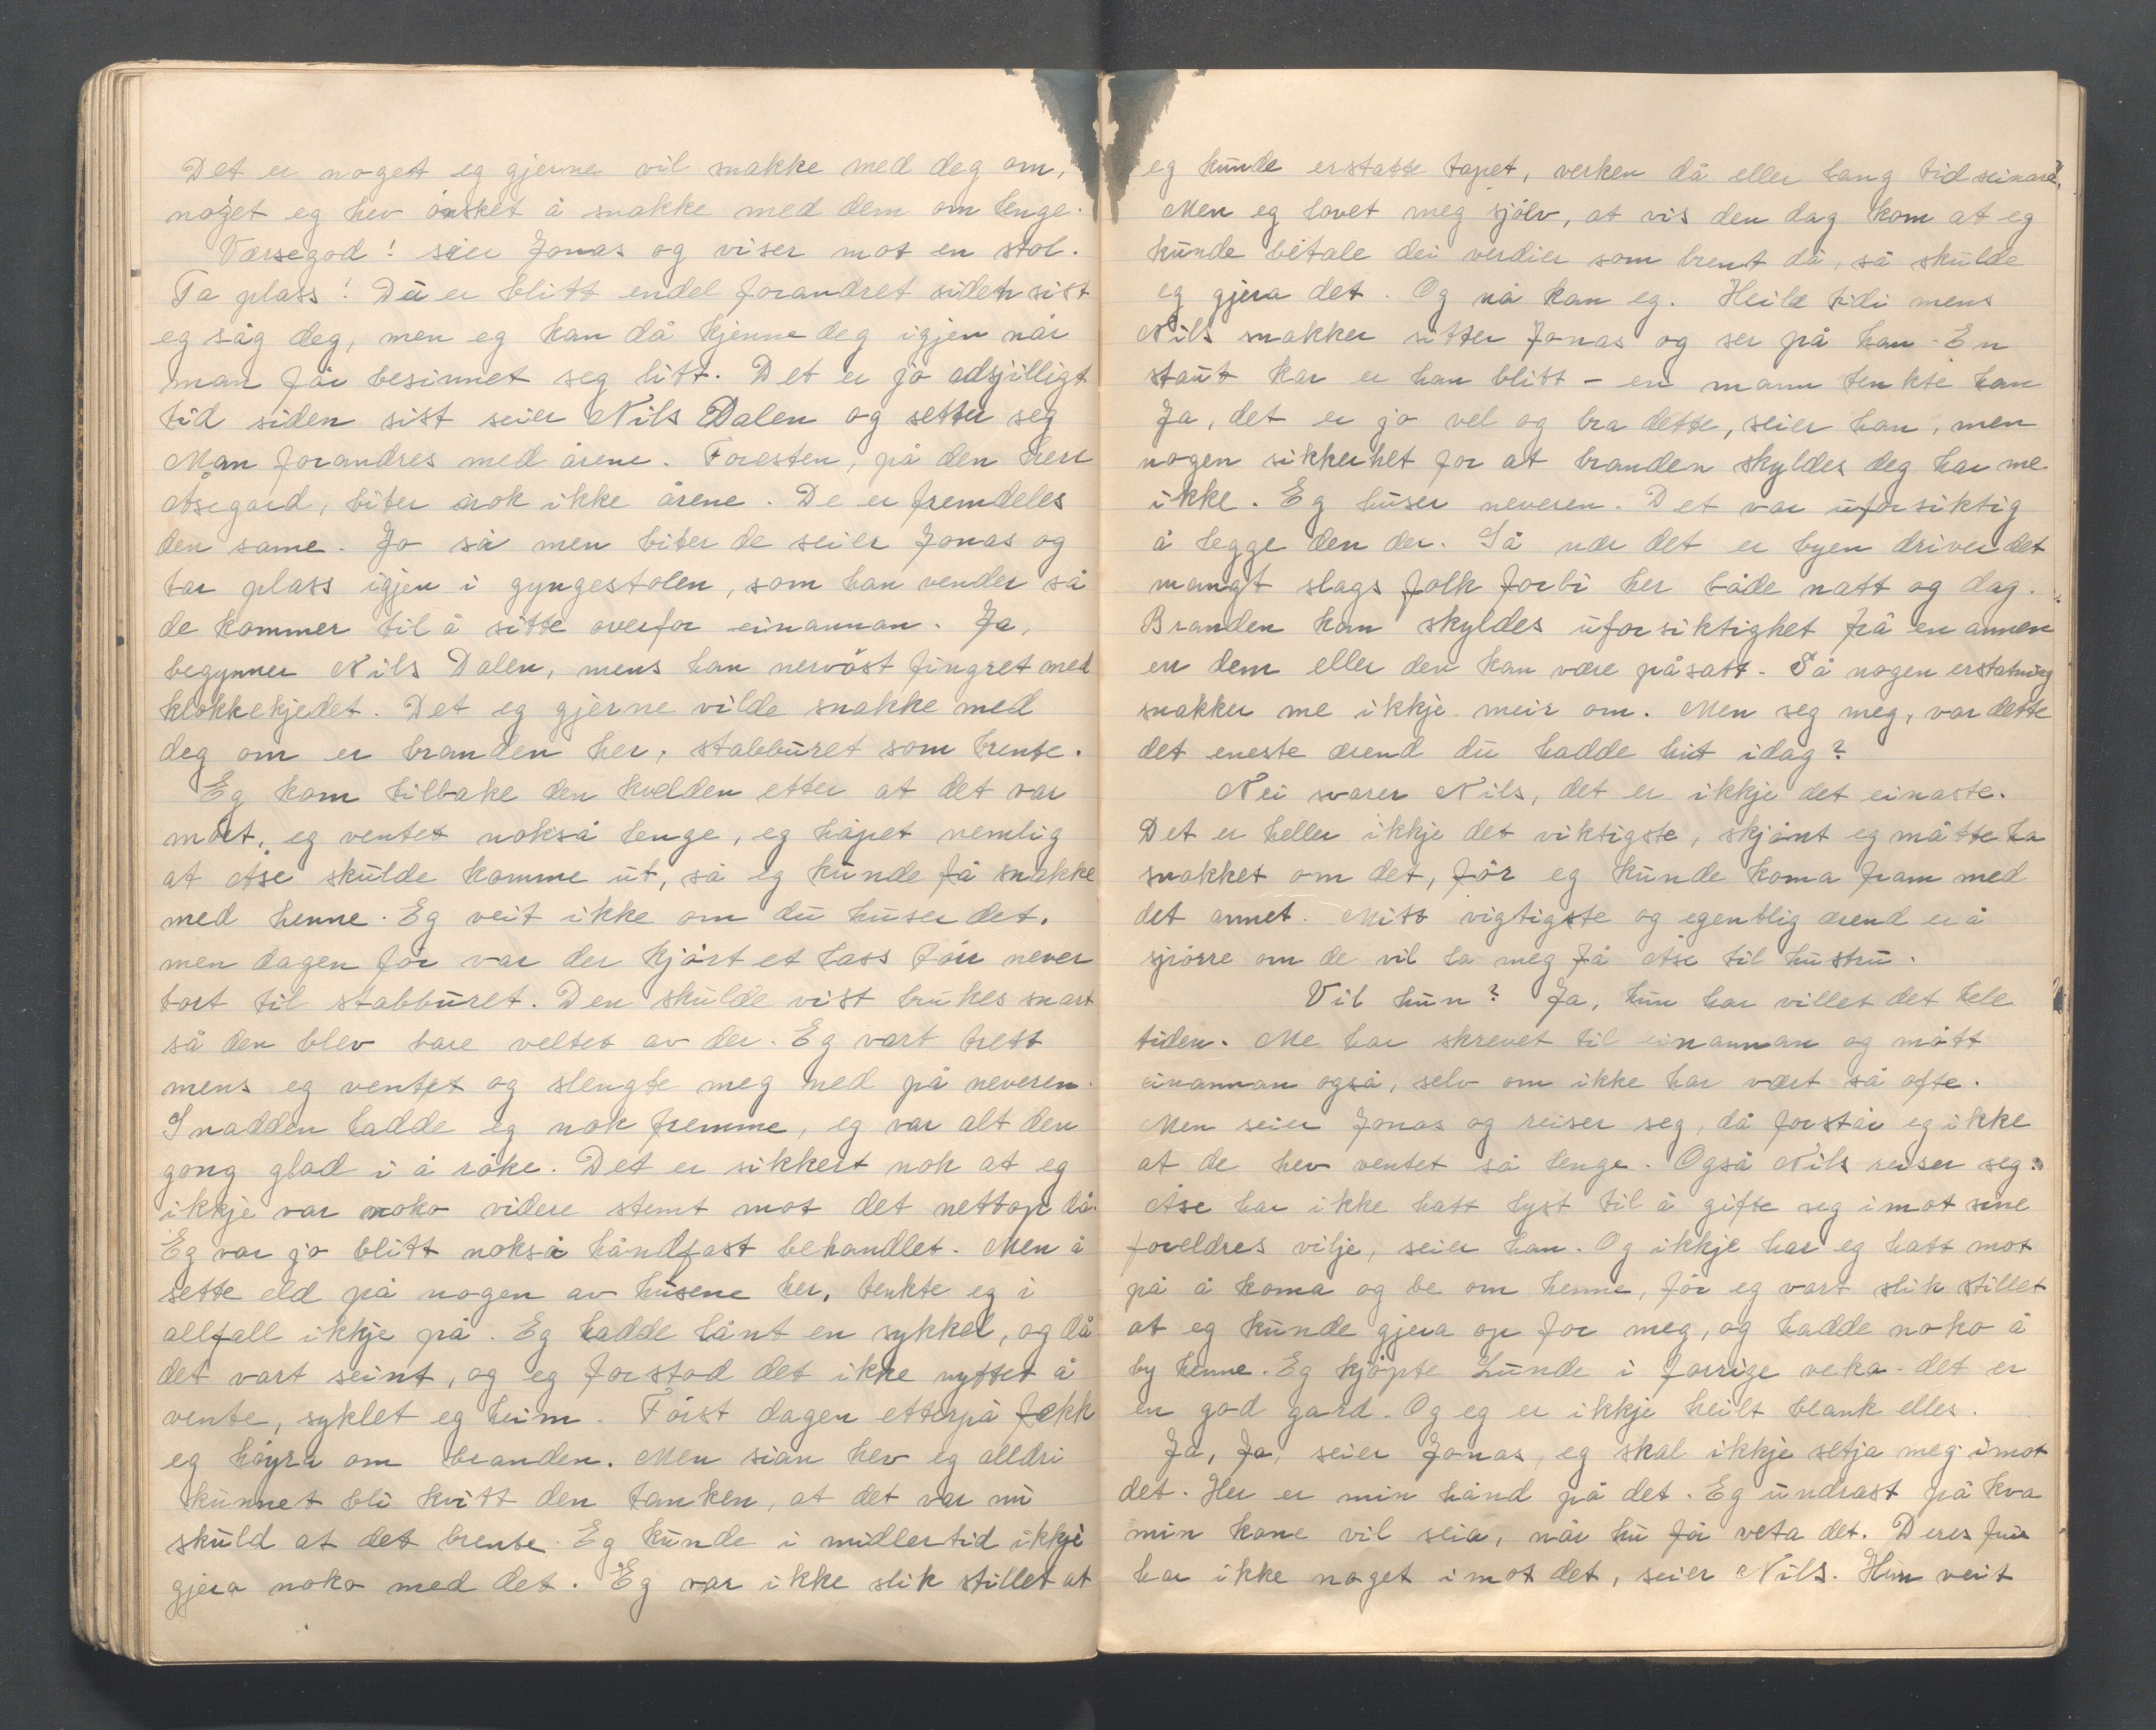 Det er noget eg gjerne vil snakke med deg om,
noget eg hev ønsket å snakke med dem om lenge.
Værsegod! seier Jonas og viser mot en stol.
Ta plass! Du er blitt endel forandret siden sist
eg såg deg, men eg kan då kjenne deg igjen når
man får besinnet seg litt. Det er jo adsjilligt
tid siden sist seier Nils Dalen og setter seg
Man forandres med årene. Foresten, på den herr
Åsegard, biter nok ikke årene. De er fremdeles
den same. Jo så men biter de seier Jonas og
tar plass igjen i gyngestolen, som han vender så
de kommer til å sitte overfor einannan. Ja,
begynner Nils Dalen, mens han nervøst fingret med
klokkekjedet. Det eg gjerne vilde snakke med
deg om er branden her, stabburet som brente.
Eg kom tilbake den kvelden etter at det var
mørt, eg ventet nokså lenge, eg håpet nemlig
at Åse skulde komme ut, så eg kunde få snakke
med henne. Eg veit ikke om du huser det,
men dagen før var der kjørt et lass tørr never
bort til stabburet. Den skulde vist brukes snart
så den blev bare veltet av der. Eg vart trett
mens eg ventet og slengte meg ned på neveren.
Snadden hadde eg nok fremme, eg var alt den
gong glad i å røke. Det er sikkert nok at eg
ikkje var noko videre stemt mot det nettop då.
Eg var jo blitt nokså håndfast behandlet. Men å
sette eld på nogen av husene her, tenkte eg i
allfall ikkje på. Eg hadde lånt en sykkel, og då
det vart seint, og eg forstod det ikke nyttet å
vente, syklet eg heim. Først dagen etterpå fekk
eg høyra om branden. Men sian hev eg alldri
kunnet bli kvitt den tanken, at det var mi
skuld at det brente. Eg kunde i midlertid ikkje
gjera noko med det. Eg var ikke slik stillet at
eg kunde erstatte tapet, verken då eller lang tid seinare.
Men eg lovet meg sjølv, at vis den dag kom at eg
kunde betale dei verdier som brent då, så skulde
eg gjera det. Og nå kan eg. Heile tidi mens
Nils snakker sitter Jonas og ser på han. En
staut kar er han blitt - en mann tenkte han
Ja, det er jo vel og bra dette, seier han, men
nogen sikkerhet for at branden skyldes deg har me
ikke. Eg huser neveren. Det var uforsiktig
å legge den der. Så nær det er byen driver det
mangt slags folk forbi her både natt og dag.
Branden kan skyldes uforsiktighet frå en annen
en dem eller den kan være påsatt. Så nogen erstatning
snakker me ikkje meir om. Men seg meg, var dette
det eneste ærend du hadde hit idag?
Nei svarer Nils, det er ikkje det einaste.
Det er heller ikkje det viktigste, skjønt eg måtte ha
snakket om det, før eg kunde koma fram med
det annet. Mitt vigtigste og egentlig ærend er å
spørre om de vil la meg få Åse til hustru.
Vil hun? Ja, hun har villet det hele
tiden. Me har skrevet til einannan og møtt
einannan også, selv om ikke har vært så ofte.
Men seier Jonas og reiser seg, då forstår eg ikke
at de hev ventet så lenge. Også Nils reiser seg.
Åse har ikke hatt lyst til å gifte seg imot sine
foreldres vilje, seier han. Og ikkje har eg hatt mot
på å koma og be om henne, før eg vart slik stillet
at eg kunde gjera op for meg, og hadde noko å
by henne. Eg kjøpte Lunde i forrige veka - det er
en god gard. Og eg er ikkje heilt blank elles.
Ja, Ja, seier Jonas, eg skal ikkje setja meg imot
det. Her er min hånd på det. Eg undrast på kva
min kone vil seia, når hu får veta det. Deres frue
har ikke noget imot det, seier Nils. Hun veit